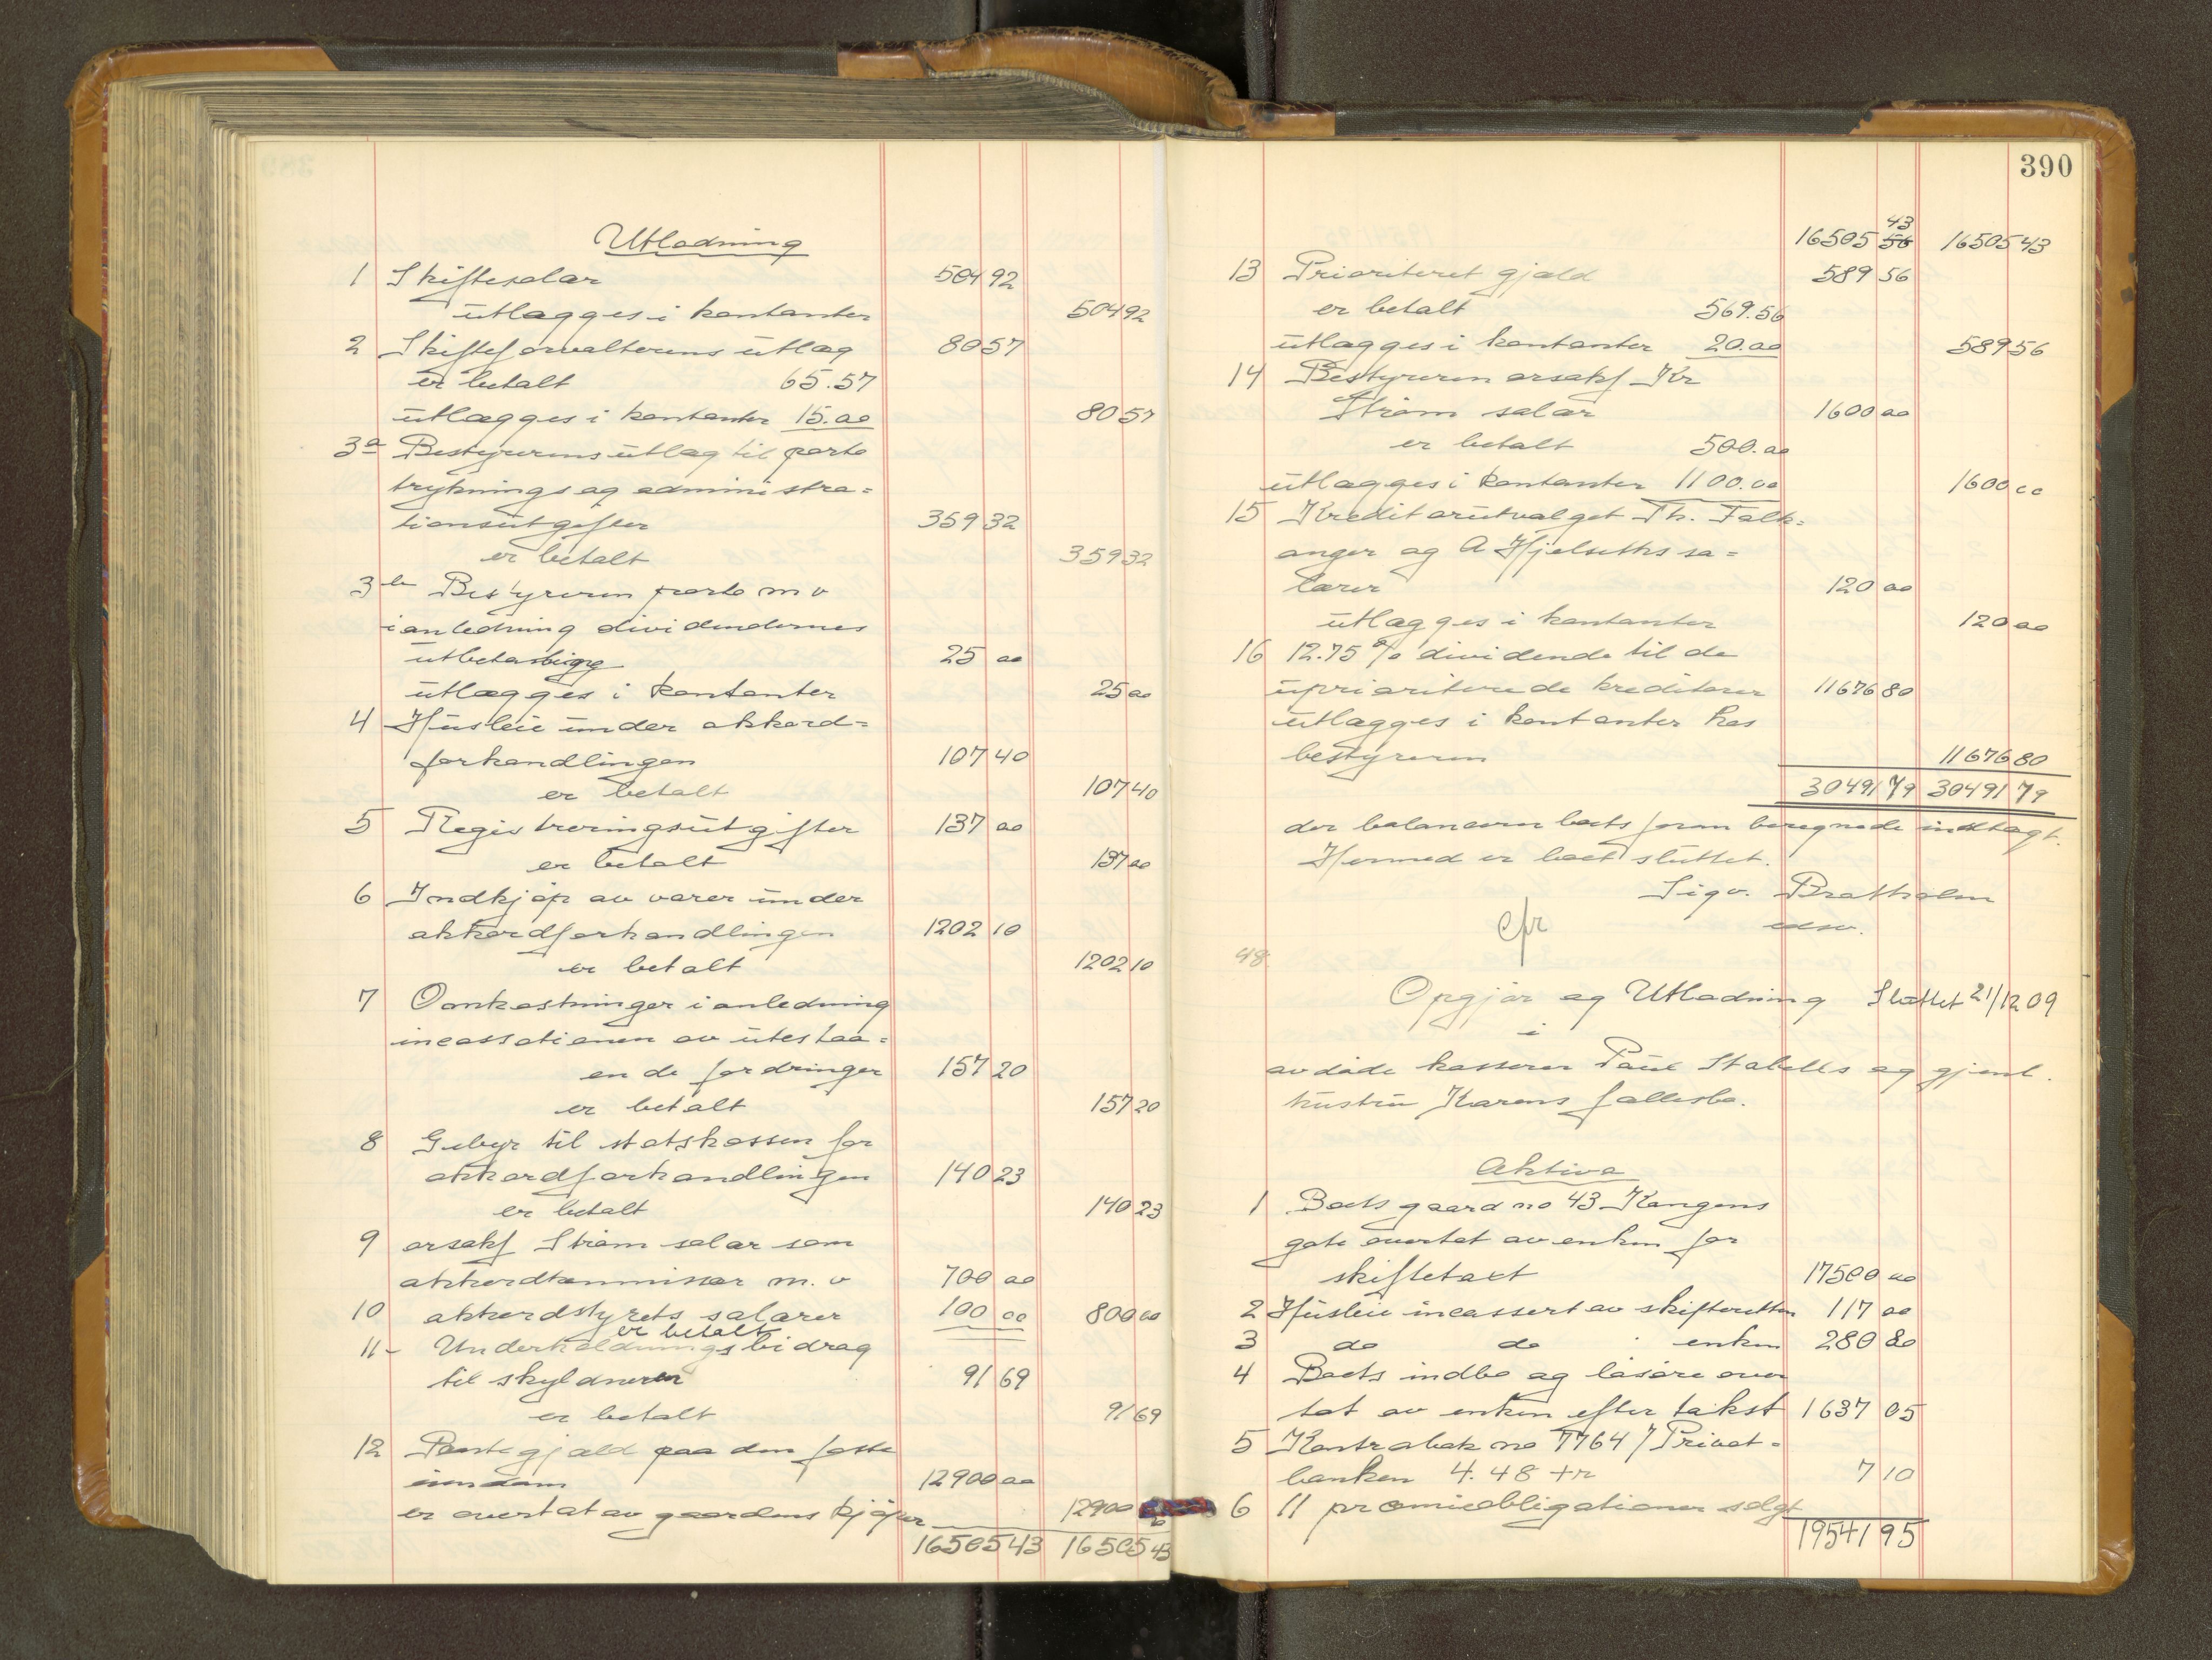 Utlodning
1 Skiftesalær 504 92
utlægges i kontanter 504 92
2 Skifteforvalterens utlæg 80 57
er betalt 65.57
utlægges i kontanter 15.00 80 57
3a Bestyrerens utlæg til porto
trykning og administra=
tionsutgifter 359 32
er betalt 359 32
3b Bestyreren porto m v
i anledning dividendernes
utbetaling 25 00
utlægges i kontanter 25 00
4 Husleie under akkord=
forhandlingen 107 40
er betalt 107 40
5 Registreringsutgifter 137 00
er betalt 137 00
6 Indkjøp av varer under
akkordforhandlingen 1202 10
er betalt 1202 10
7 Omkostninger i anledning
incassationen av utestaa=
ende fordringer 157 20
er betalt 157 20
8 Gebyr til statskassen for
akkordforhandlingen 140 23
er betalt 140 23
9 orsakf Strøm salær som
akkordkommissær m. v 700 00
10 akkordstyrets salærer 100 00 800 00
er betalt
11 - Underholdningsbidrag
til skyldneren 91 69
er betalt 91 69
12 Pantegjæld paa den faste
eiendom 12900 00
er overtat av gaardens kjøper 12900
16505 43 16505 43
390
43
16505 56 16505 43
13 Prioritert gjæld 589 56
er betalt 569.56
utlægges i kontanter 20.00 589 56
14 Bestyreren orsakf Kr
Strøm salær 1600 00
er betalt 500.00
utlægges i kontanter 1100.00 1600 00
15 Kreditorutvalget Th. Falk=
anger og A Hjelseths sa=
lærer 120 00
utlægges i kontanter 120 00
16 12.75 % dividende til de
uprioriterede kreditorer 11676 80
utlægges i kontanter hos
bestyreren 11676 80
30491 79 30491 79
der balancerer boets foran beregnede indtægt.
Hermed er boet sluttet.
Sigv. Bratholm
edsv.
cfr
48
Opgjør og Utlodning Sluttet 21/12 09
i
avdøde kasserer Paul Stabells og gjenl.
hustru Karens fællesbo.
Aktiva
1 Boets gaard no 43 Kongens
gate overtat av enken for
skiftetakst 17500 00
2 Husleie incassert av skifteretten 117 00
3 do do enken 280 80
4 Boets indbo og løsøre over
tat av enken efter takst 1637 05
5 Kontrabok no 7764 / Privat=
banken 4.48 + r 7 10
6 11 præmieobligationer solgt
19541 95